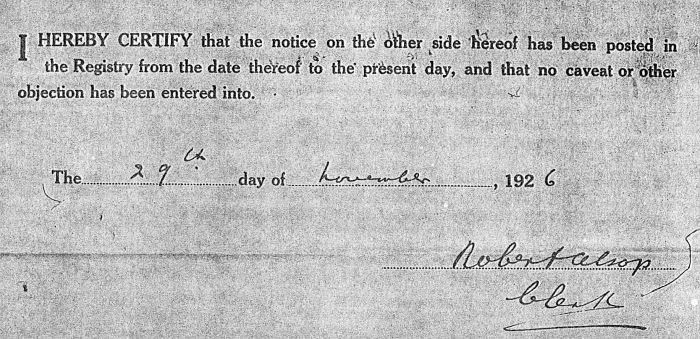 I HEREBY CERTIFY that the notice on the other side hereof has been posted in
the Registry from the date thereof to the present day, and that no caveat or other
objection has been entered into.
The 29th day of November, 1926
Robert Alsop
Clerk